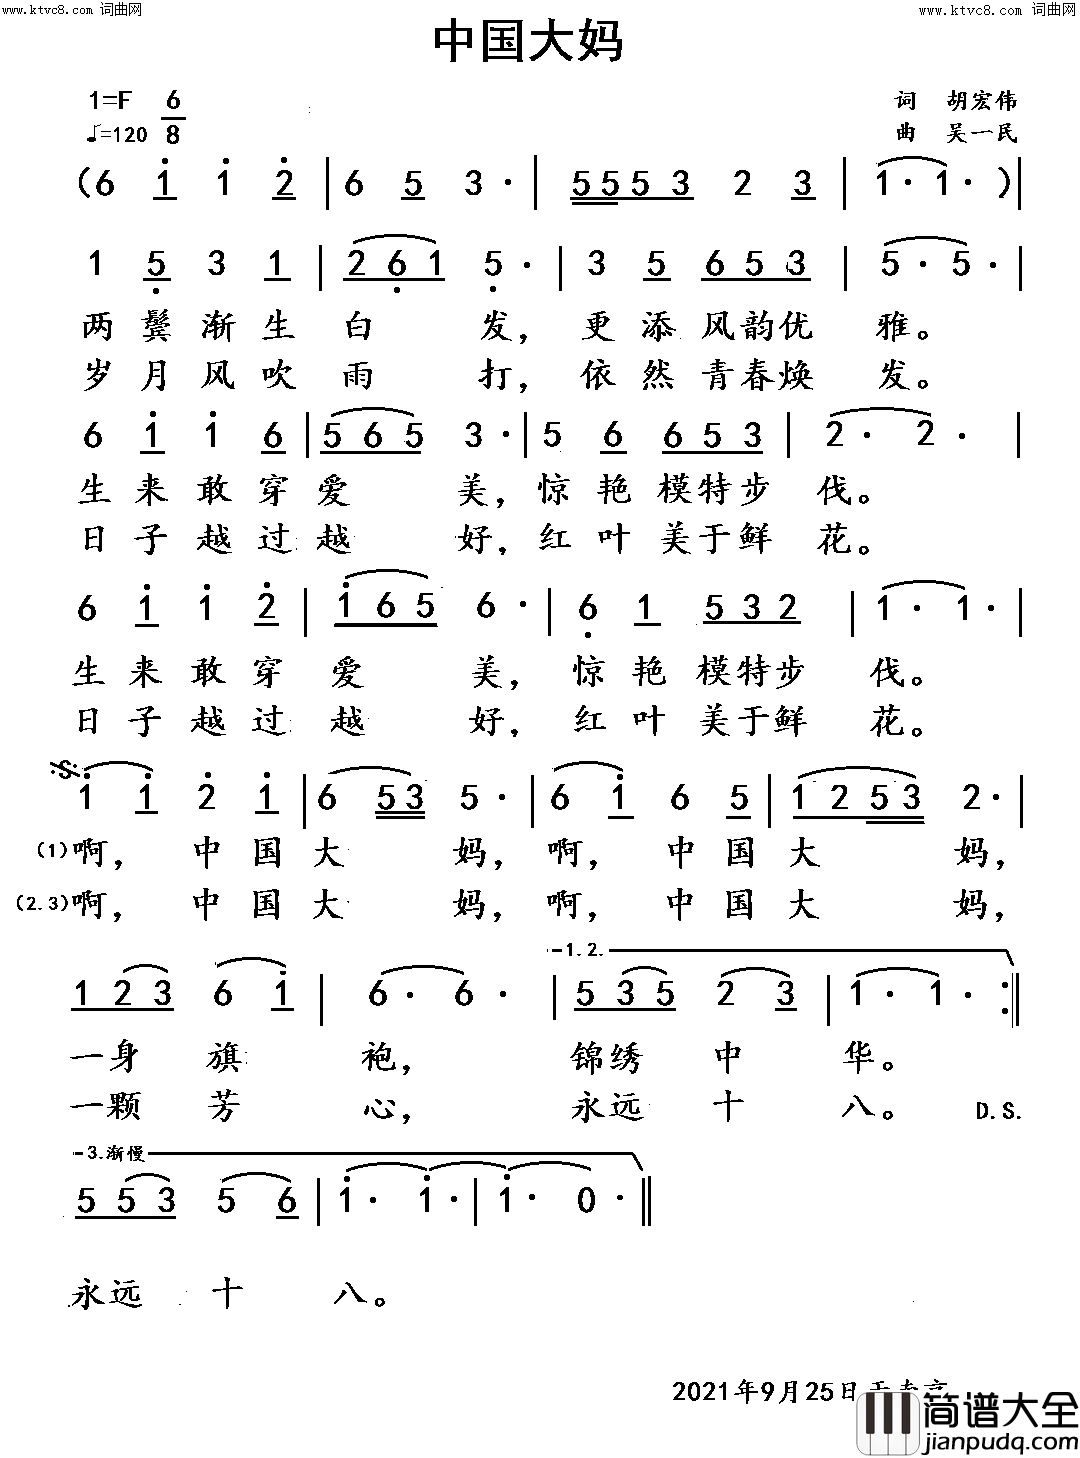 www.ktvc8.com 词曲网 www.ktvc8.com 词曲网
中国大妈
1=F 6/8 词 胡宏伟
♩=120 曲 吴一民
(6 1 1 2 | 6 5 3· | 5 5 5 3 2 3 | 1· 1· )|
1 5 3 1 | 2 6 1 5· | 3 5 6 5 3 | 5· 5· |
两鬓渐生白发，更添风韵优雅。
岁月风吹雨打，依然青春焕发。
6 1 1 6 | 5 6 5 3· | 5 6 6 5 3 | 2· 2· |
生来敢穿爱美，惊艳模特步伐。
日子越过越好，红叶美于鲜花。
6 1 1 2 | 1 6 5 6· | 6 1 5 3 2 | 1· 1· |
生来敢穿爱美，惊艳模特步伐。
日子越过越好，红叶美于鲜花。
1 1 2 1 | 6 5 3 5· | 6 1 6 5 | 1 2 5 3 2· |
(1)啊，中国大妈，啊，中国大妈，
(2.3)啊，中国大妈，啊，中国大妈，
1.2.
1 2 3 6 1 | 6· 6· | 5 3 5 2 3 | 1· 1· :||
一身旗袍，锦绣中华。
一颗芳心，永远十八。 D.S.
3.渐慢
5 5 3 5 6 | 1· 1· | 1· 0· ||
永远十八。
2021年9月25日于
简谱大全
jianpudq.com